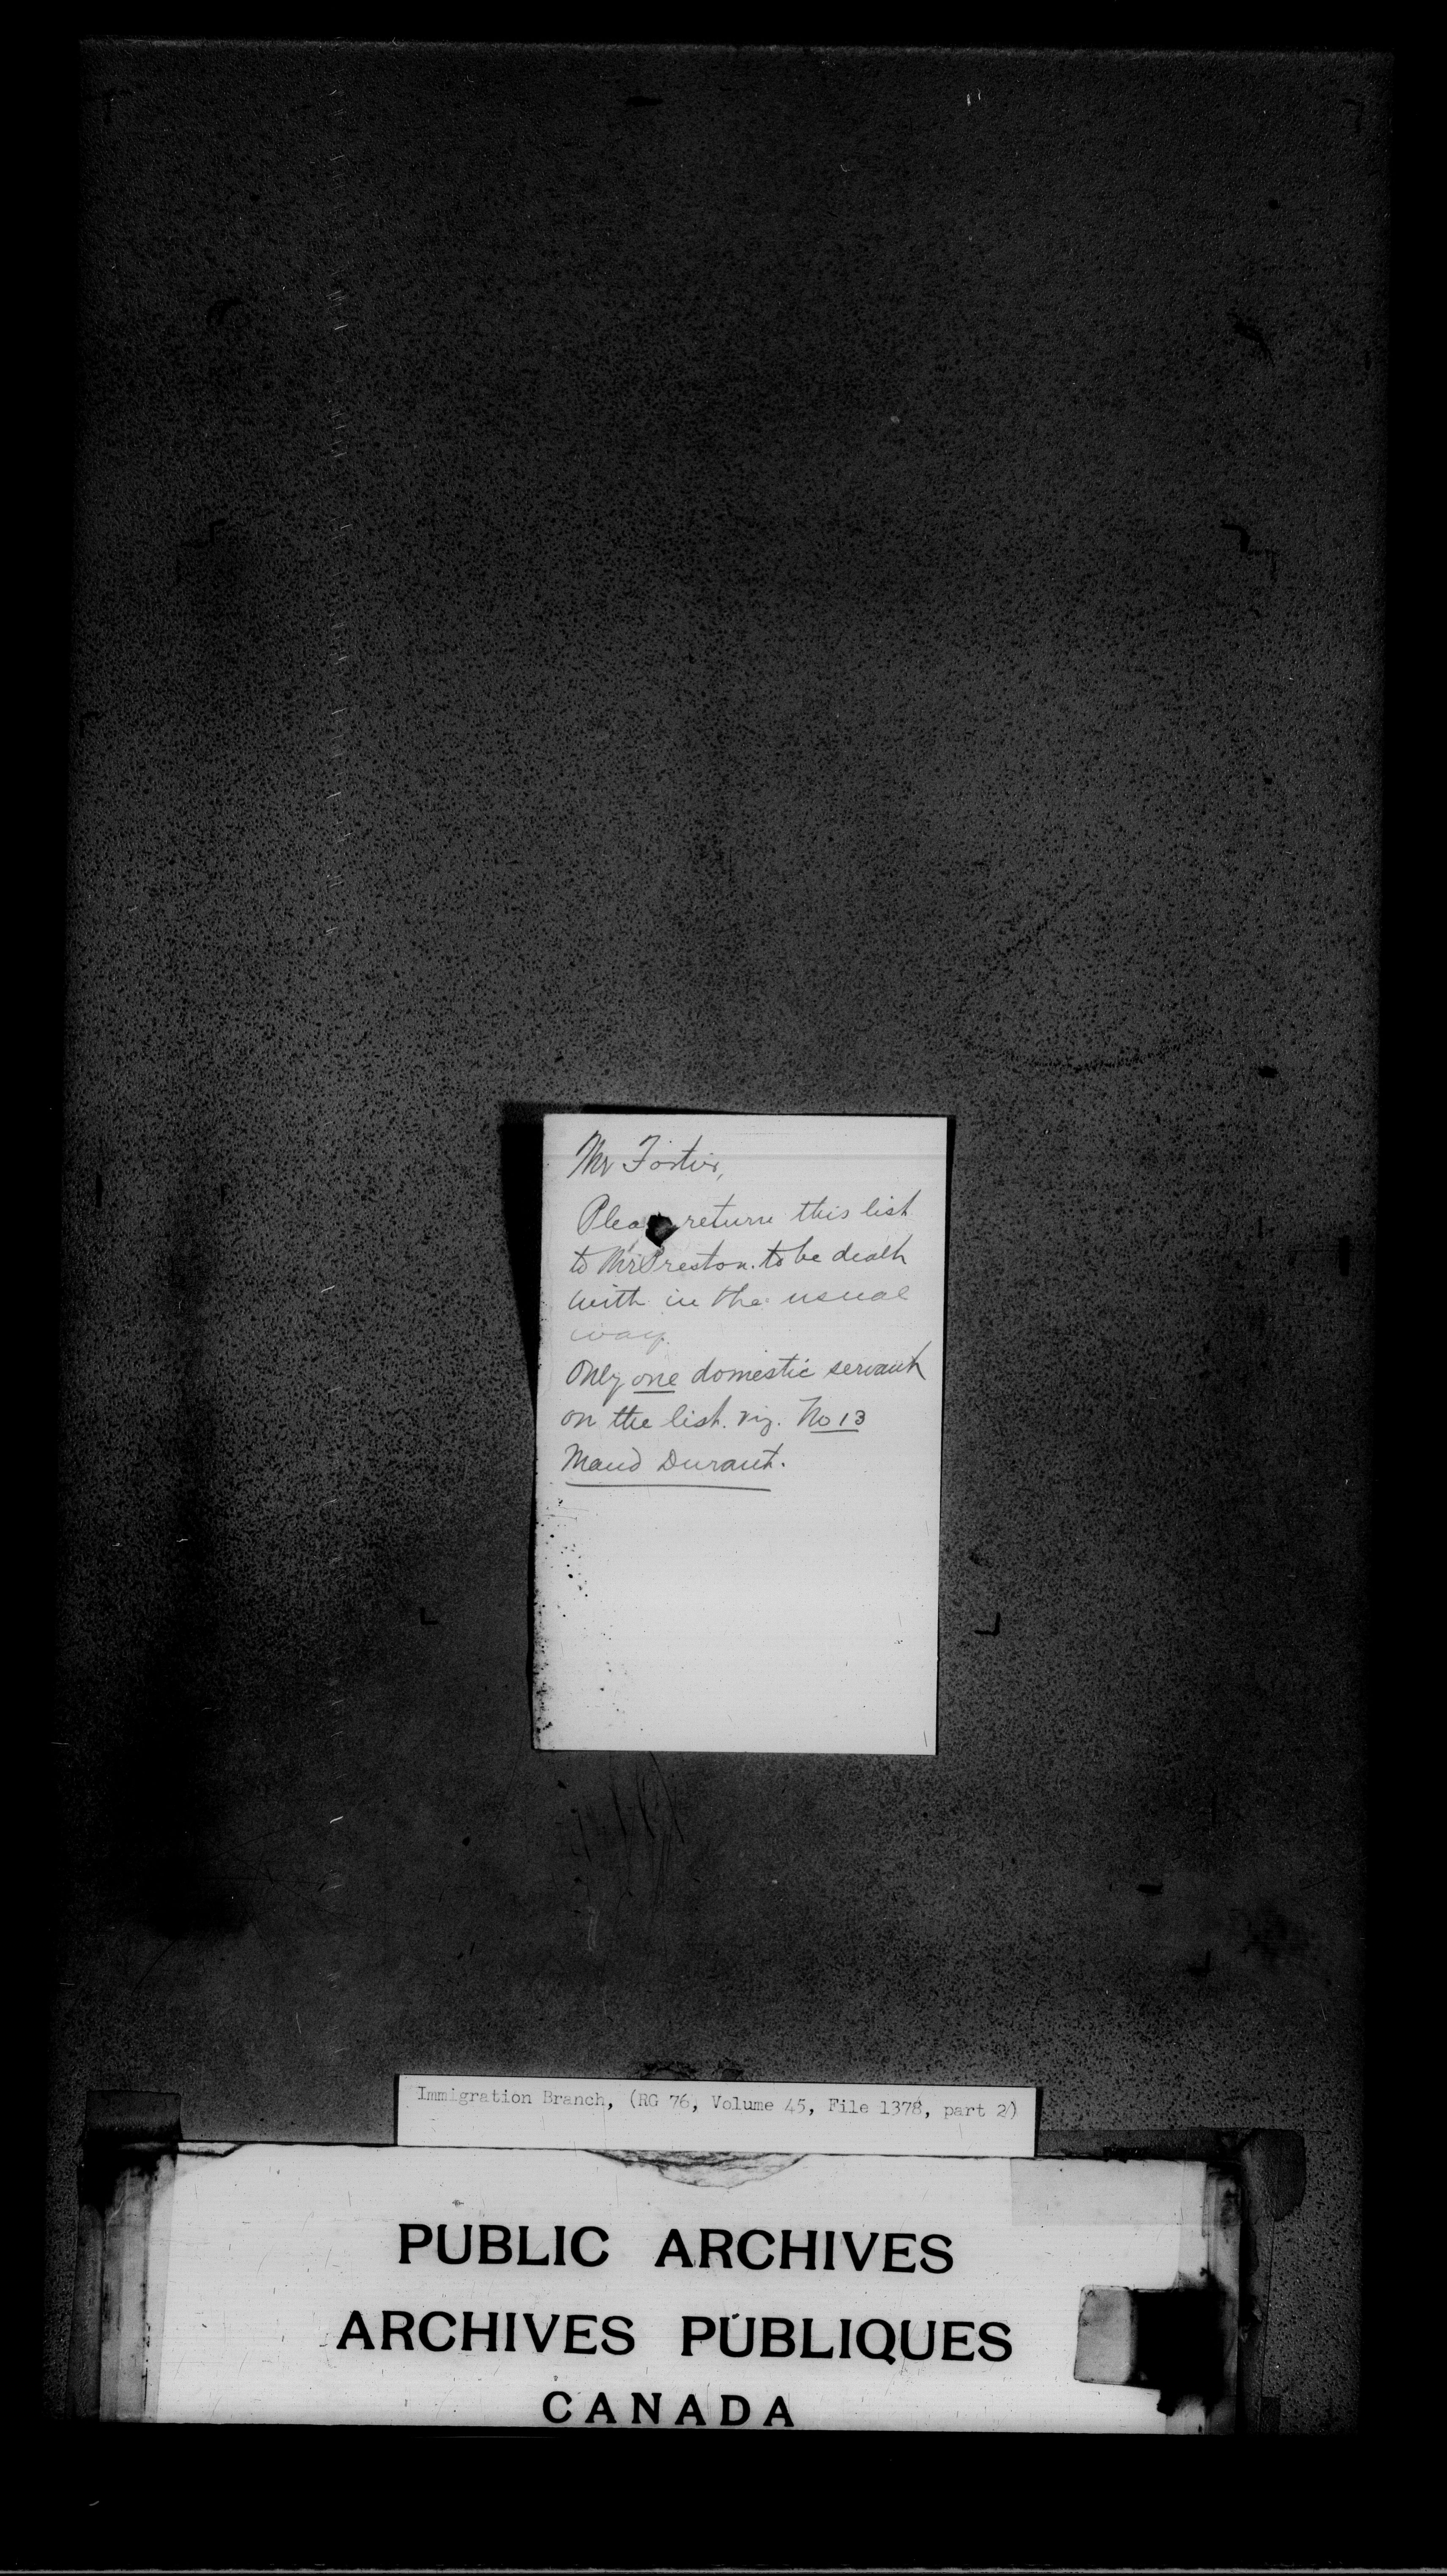 Mr Fortier,
Please return this list
to Mr Preston. to be dealt
with in the usual
way.
Only one domestic servant
on the list. viz. No 13
Maud Durant.
Immigration Branch, (RG 76, Volume 45, File 1378, part 2)
PUBLIC ARCHIVES
ARCHIVES PUBLIQUES
CANADA